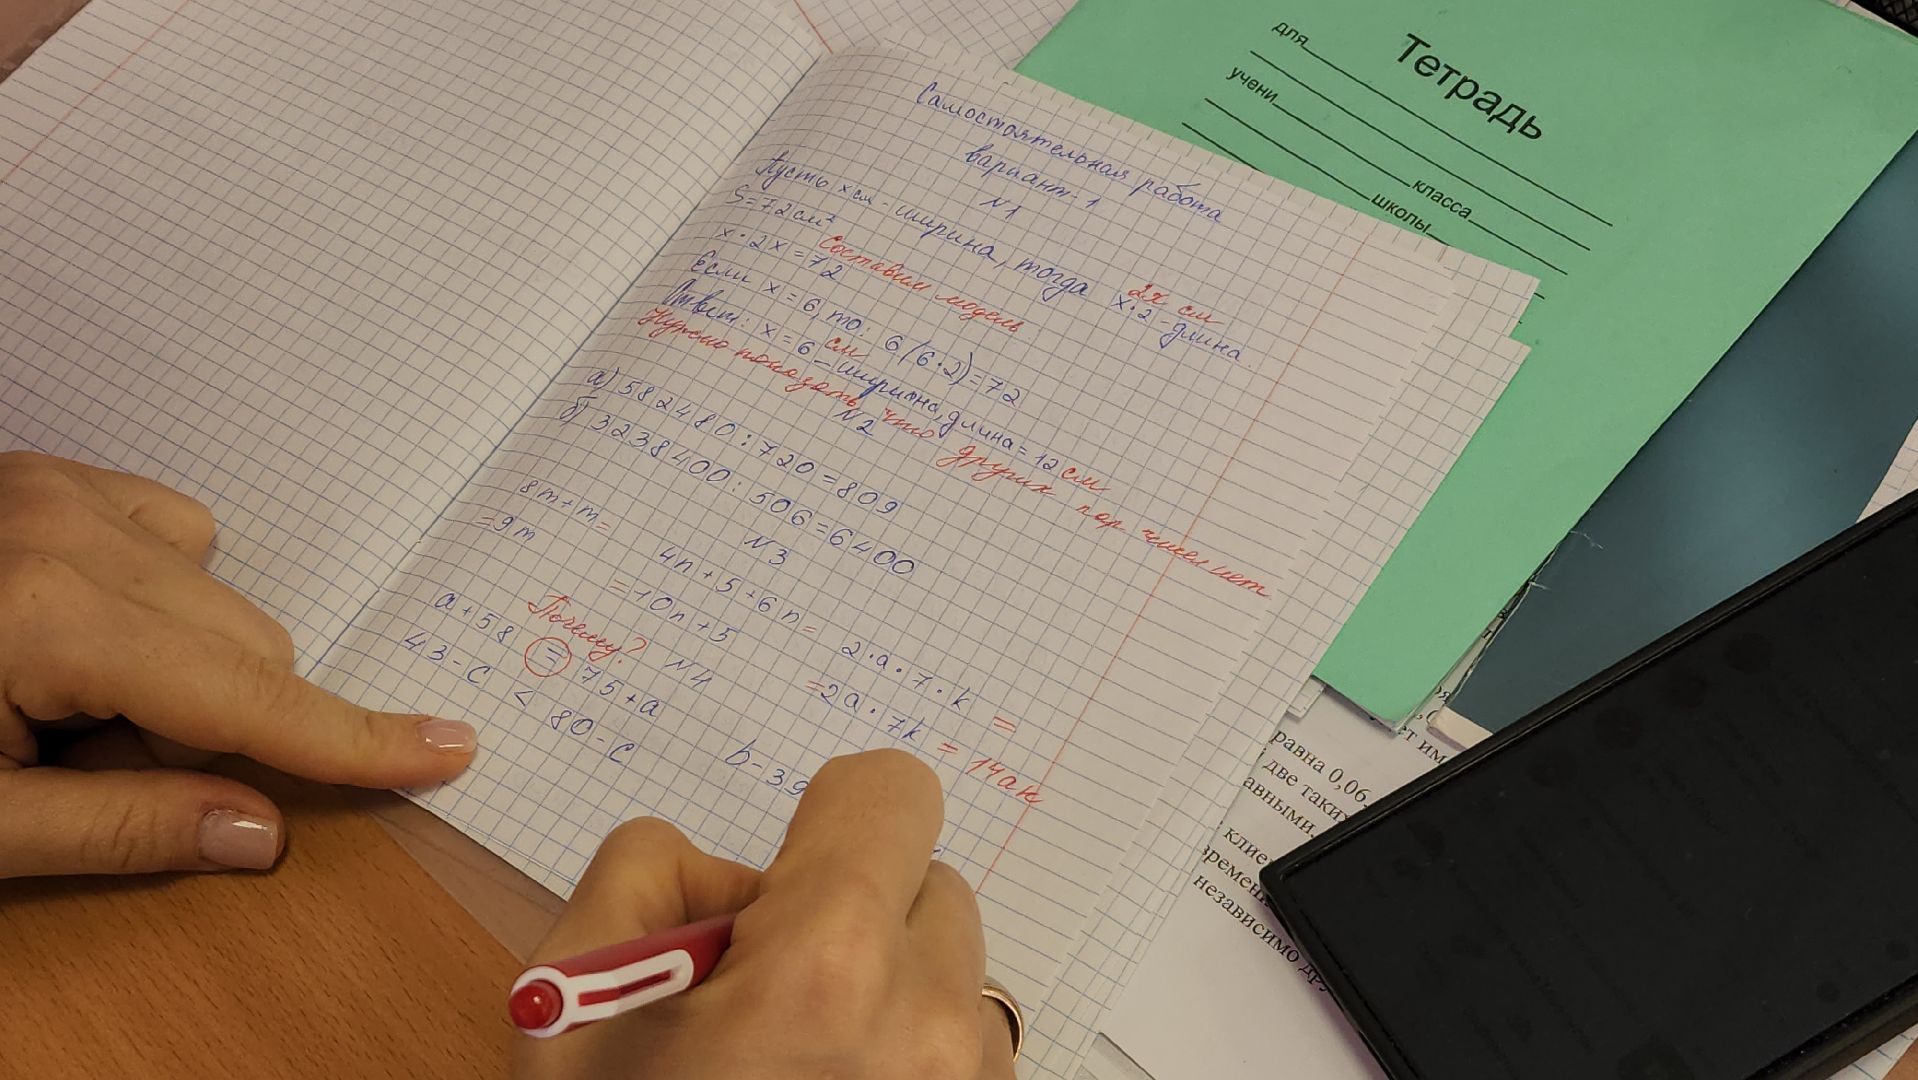 Самостоятельная работа
вариант-1
N1
Пусть x см - ширина, тогда x·2 - длина
2x см
S=72см²
Составим модель:
x·2x=72
Если x=6, то: 6(6·2)=72
Ответ: x=6 см - ширина, длина=12 см
Нужно показать, что других пар чисел нет
N2
а) 582480:720=809
б) 3238400:506=6400
N3
8m+m=
=9m
4n+5+6n=
=10n+5
2·a·7·k =
=2a·7k = 14ak
N4
Почему?
a+58 = 75+a
43-c < 80-c
b-39
Тетрадь
для
учени
класса
школы
равна 0,06.
две таких
авными.
клие
времен
независимо дру